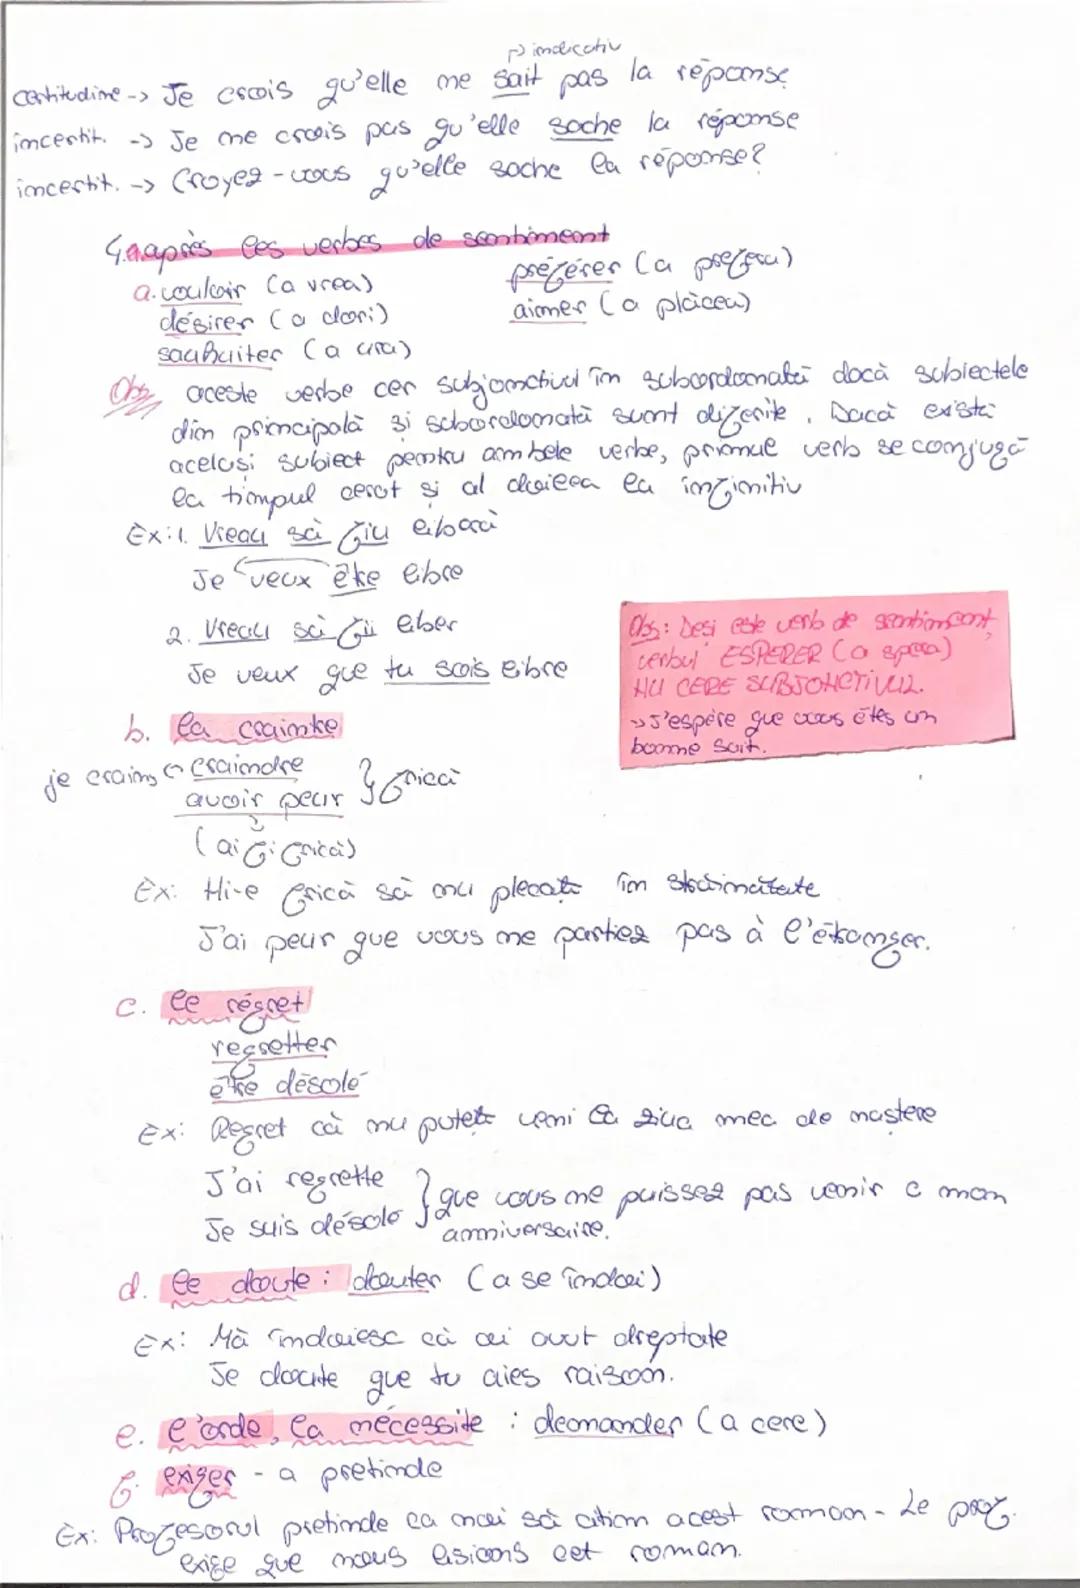 ↳ indicativ
certitudine -> Je crois qu'elle ne sait pas la réponse
incertit. -> Je ne crois pas qu'elle sache la réponse
incertit. -> Croyez-vous qu'elle sache la réponse?
4. après les verbes de sentiment
a. vouloir (a vrea) préférer (a prefera)
désirer (a dori) aimer (a plăcea)
souhaiter (a ura)
Obs. aceste verbe cer subjonctivul în subordonată dacă subiectele
din principală și subordonată sunt diferite. Dacă există
același subiect pentru ambele verbe, primul verb se conjugă
la timpul cerut și al doilea la infinitiv
Ex: 1. Vreau să fiu liberă
Je veux être libre
2. Vreau să fii liber
Je veux que tu sois libre
Obs: Desi este verb de sentiment,
verbul ESPERER (a spera)
NU CERE SUBJONCTIVUL.
->J'espère que vous êtes un
bonne soit.
b. la crainte
je crains <- craindre } frică
avoir peur
(a-i fi frică)
Ex: Mi-e frică să nu plecați în străinătate
J'ai peur que vous ne partiez pas à l'étranger.
c. le régret
regretter
être désolé
Ex: Regret că nu puteți veni la ziua mea de naștere
J'ai regrette } que vous ne puissez pas venir a mon
Je suis désolé anniversaire.
d. le doute : douter (a se îndoi)
Ex: Mă îndoiesc că ai avut dreptate
Je doute que tu aies raison.
e. l'orde, la nécessite : demander (a cere)
f. exiger - a pretinde
Ex: Profesorul pretinde ca noi să citim acest roman - Le prof.
exige que nous lisions cet roman.